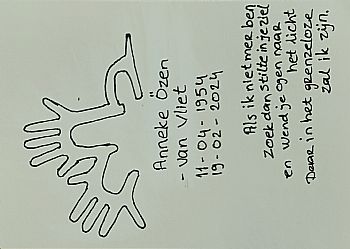 Anneke Özen
- van Vliet
11-04-1954
19-02-2024
Als ik niet meer ben
Zoek dan stilte in je ziel
en Wend je ogen naar
het licht
Daar in het grenzeloze
zal ik zijn.